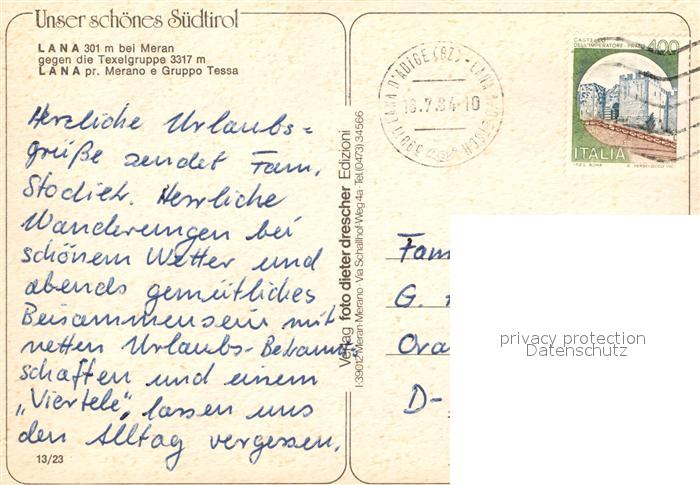 Unser schönes Südtirol
LANA 301 m bei Meran
gegen die Texelgruppe 3317 m
LANA pr. Merano e Gruppo Tessa
Herzliche Urlaubs=
grüße sendet Fam.
Herrliche
Wanderungen bei
schönem Wetter und
abends gemütliches
Beisammensein mit
netten Urlaubs-Bekannt-
schaften und einem
„Viertele", lassen uns
den Alltag vergessen.
13/23
Verlag foto dieter drescher Edizioni
I-39012 Meran-Merano-Via Schallhof-Weg 4a-Tel.(0473) 34566
39011 LANA D'ADIGE (BZ) - LANA A.D. ETSCH
18.7.84-10
CASTELLO
DELL'IMPERATORE-PRATO
400
ITALIA
Fam
G.
D-
privacy protection
Datenschutz